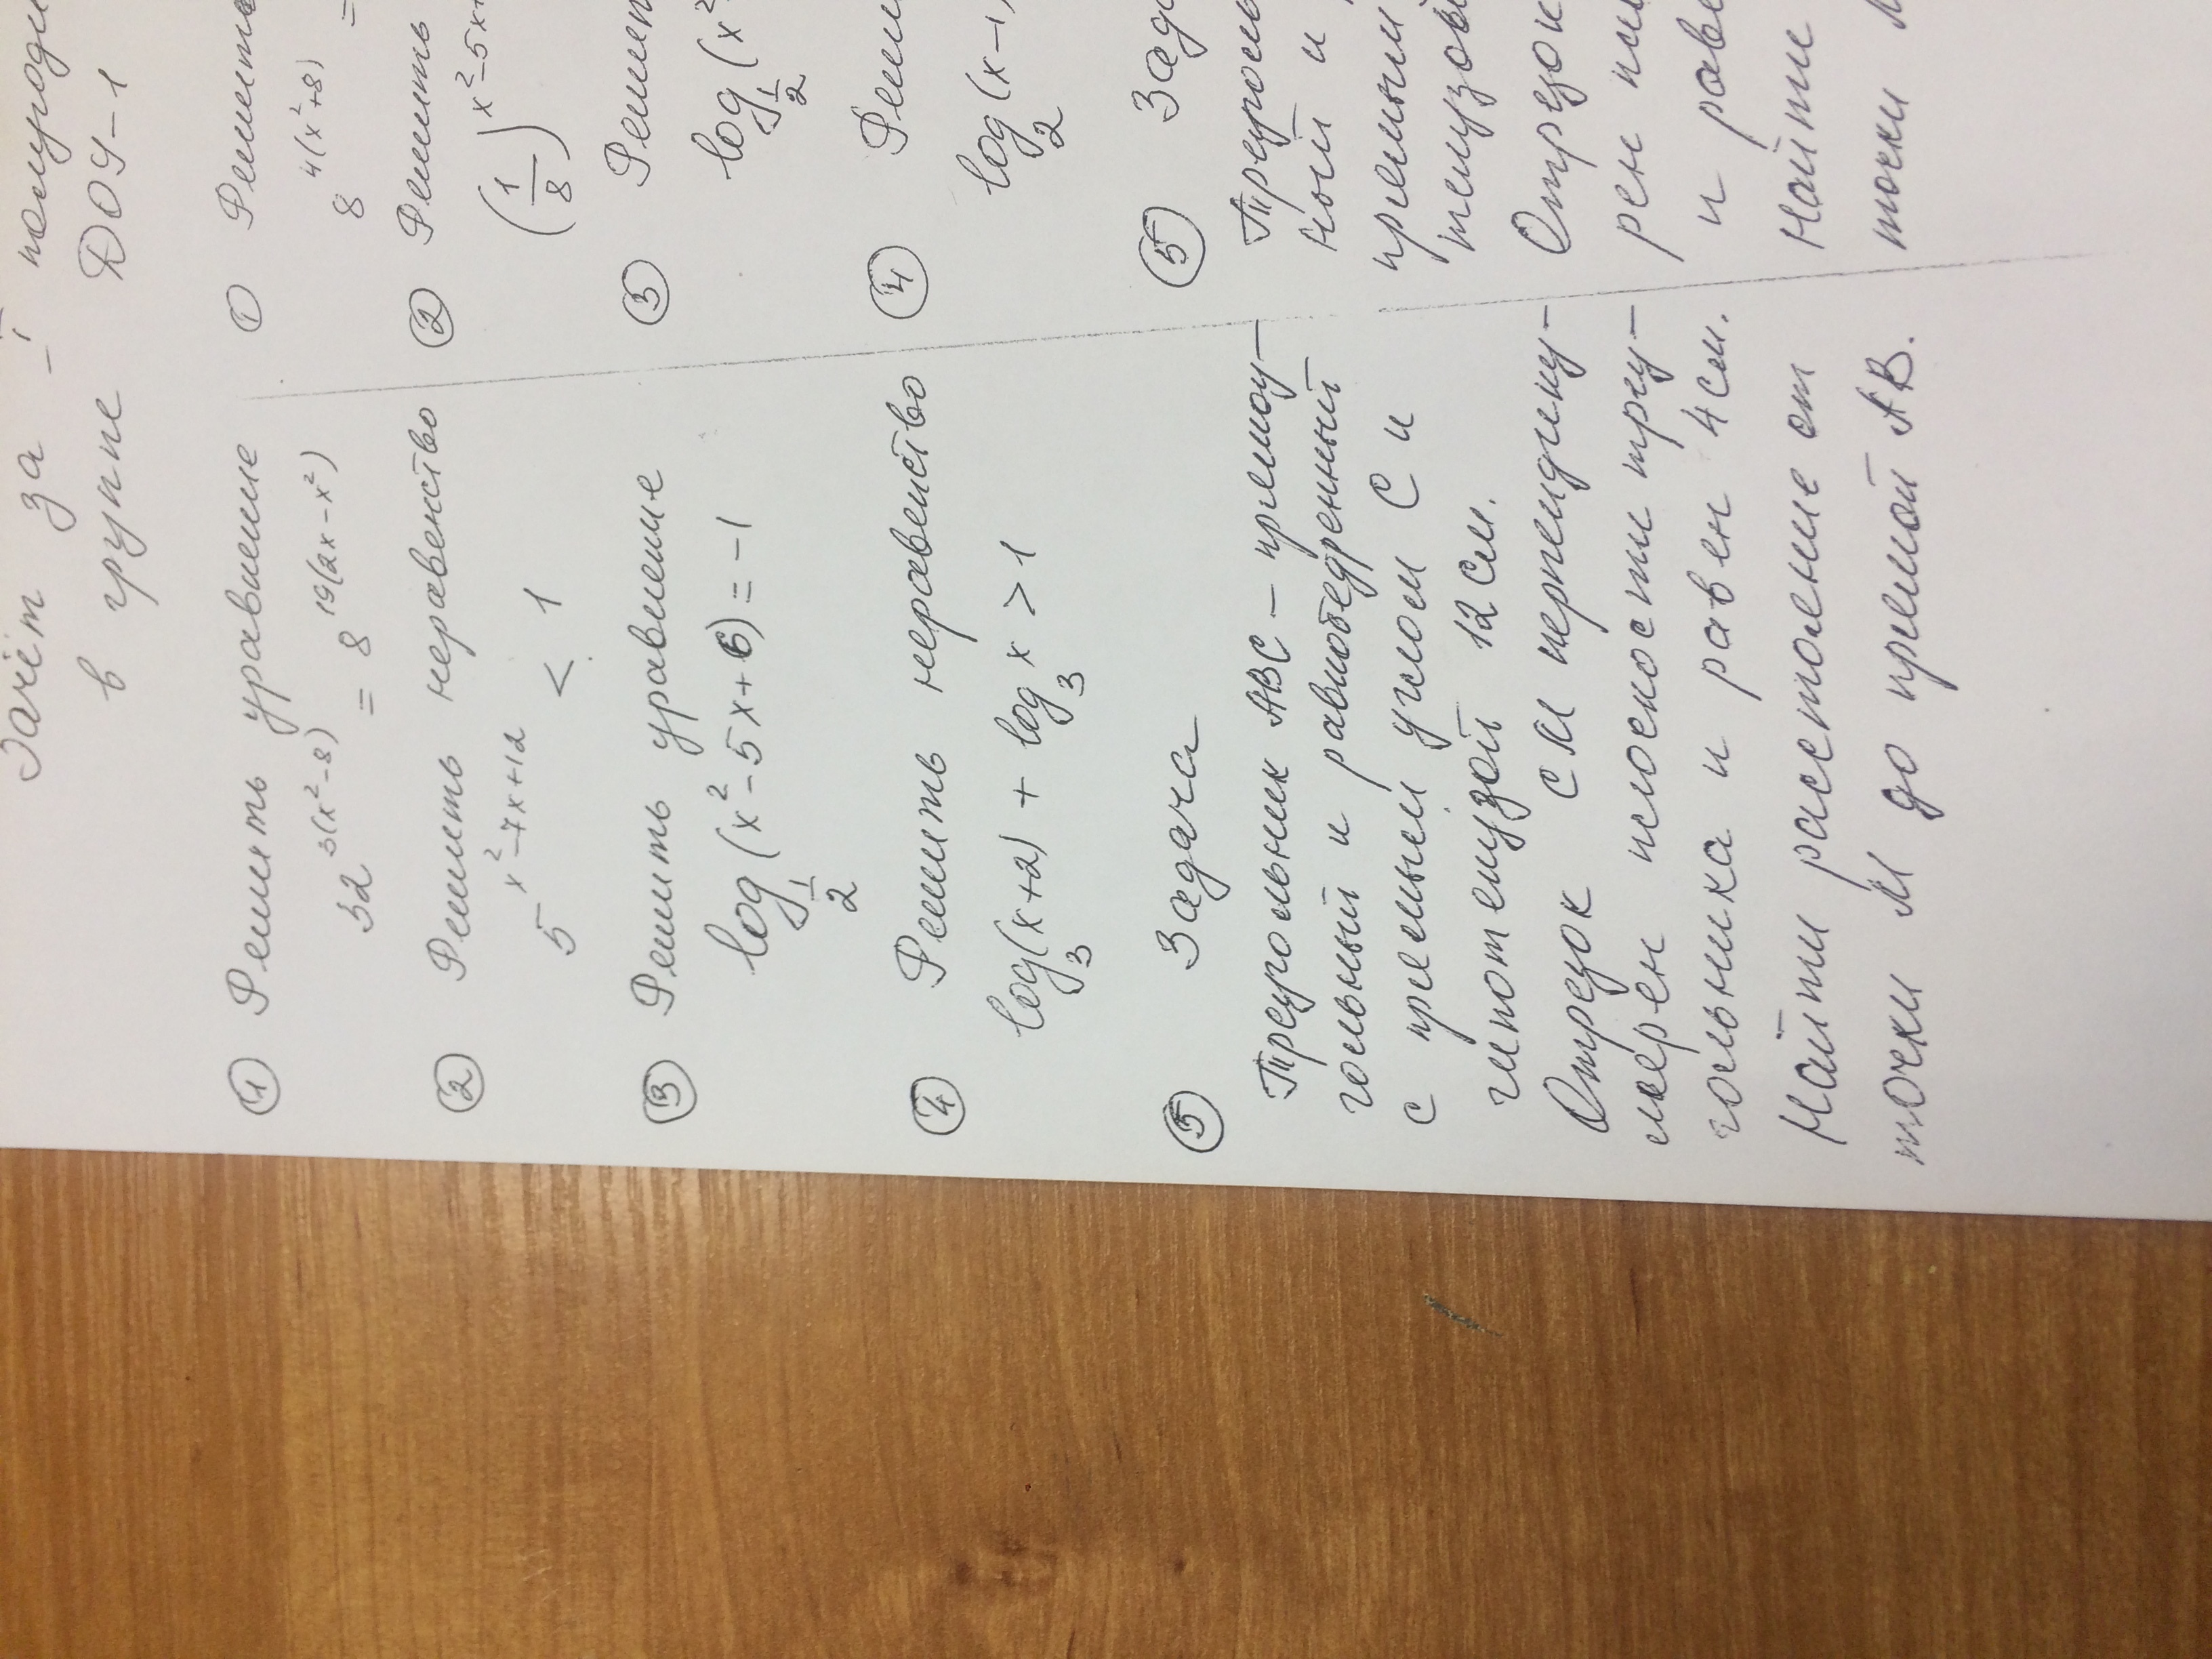 Зачёт за – I полугоди
в группе ДОУ-1
① Решить уравнение
32^3(x²-8) = 8^19(2x-x²)
② Решить неравенство
5^x²-7x+12 < 1
③ Решить уравнение
log_1/2 (x²-5x+6) = -1
④ Решить неравенство
log_3(x+2) + log_3 x > 1
⑤ Задача
Треугольник ABC – прямоу-
гольный и равнобедренный
с прямым углом C и
гипотенузой 12 см.
Отрезок CM перпендику-
лярен плоскости треу-
гольника и равен 4 см.
Найти расстояние от
точки M до прямой AB.
① Решить
8^4(x²+8) =
② Решить
(1/8)^x²-5x+
③ Решит
log_1/2 (x²
④ Реши
log_2(x-1)
⑤ Зада
Треуголь
ный и
прямым
гипотенузой
Отрезок
рен пло
и раве
Найти
точки М